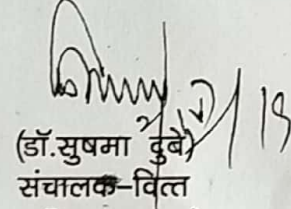 (डॉ.सुषमा दुबे)
संचालक-वित्त